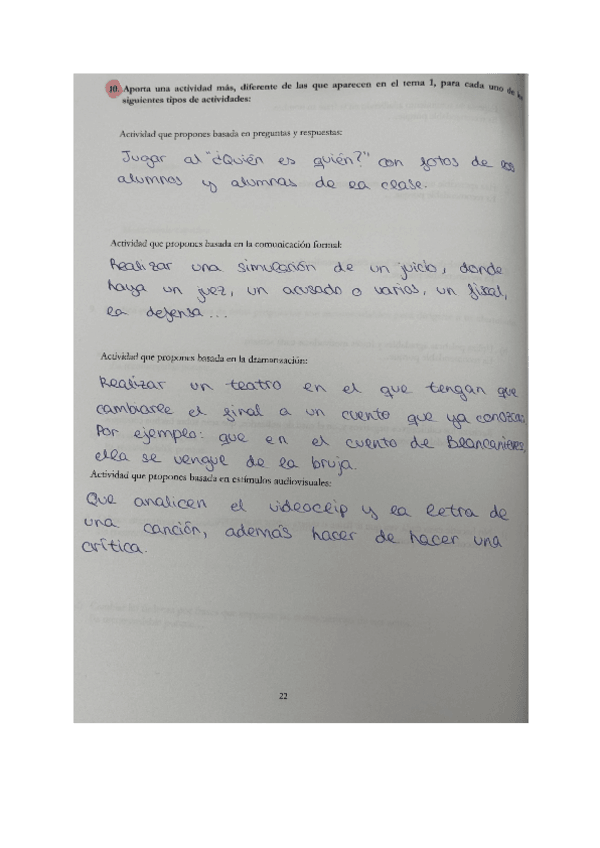 10. Aporta una actividad más, diferente de las que aparecen en el tema 1, para cada uno de los
siguientes tipos de actividades:
Actividad que propones basada en preguntas y respuestas:
Jugar al "¿Quién es quién?" con fotos de los
alumnos y alumnas de la clase.
Actividad que propones basada en la comunicación formal:
Realizar una simulación de un juicio, donde
haya un juez, un acusado o varios, un fiscal,
la defensa...
Actividad que propones basada en la dramatización:
Realizar un teatro en el que tengan que
cambiarle el final a un cuento que ya conozcan.
Por ejemplo: que en el cuento de Blancanieves,
ella se vengue de la bruja.
Actividad que propones basada en estímulos audiovisuales:
Que analicen el videoclip y la letra de
una canción, además hacer de hacer una
crítica.
22